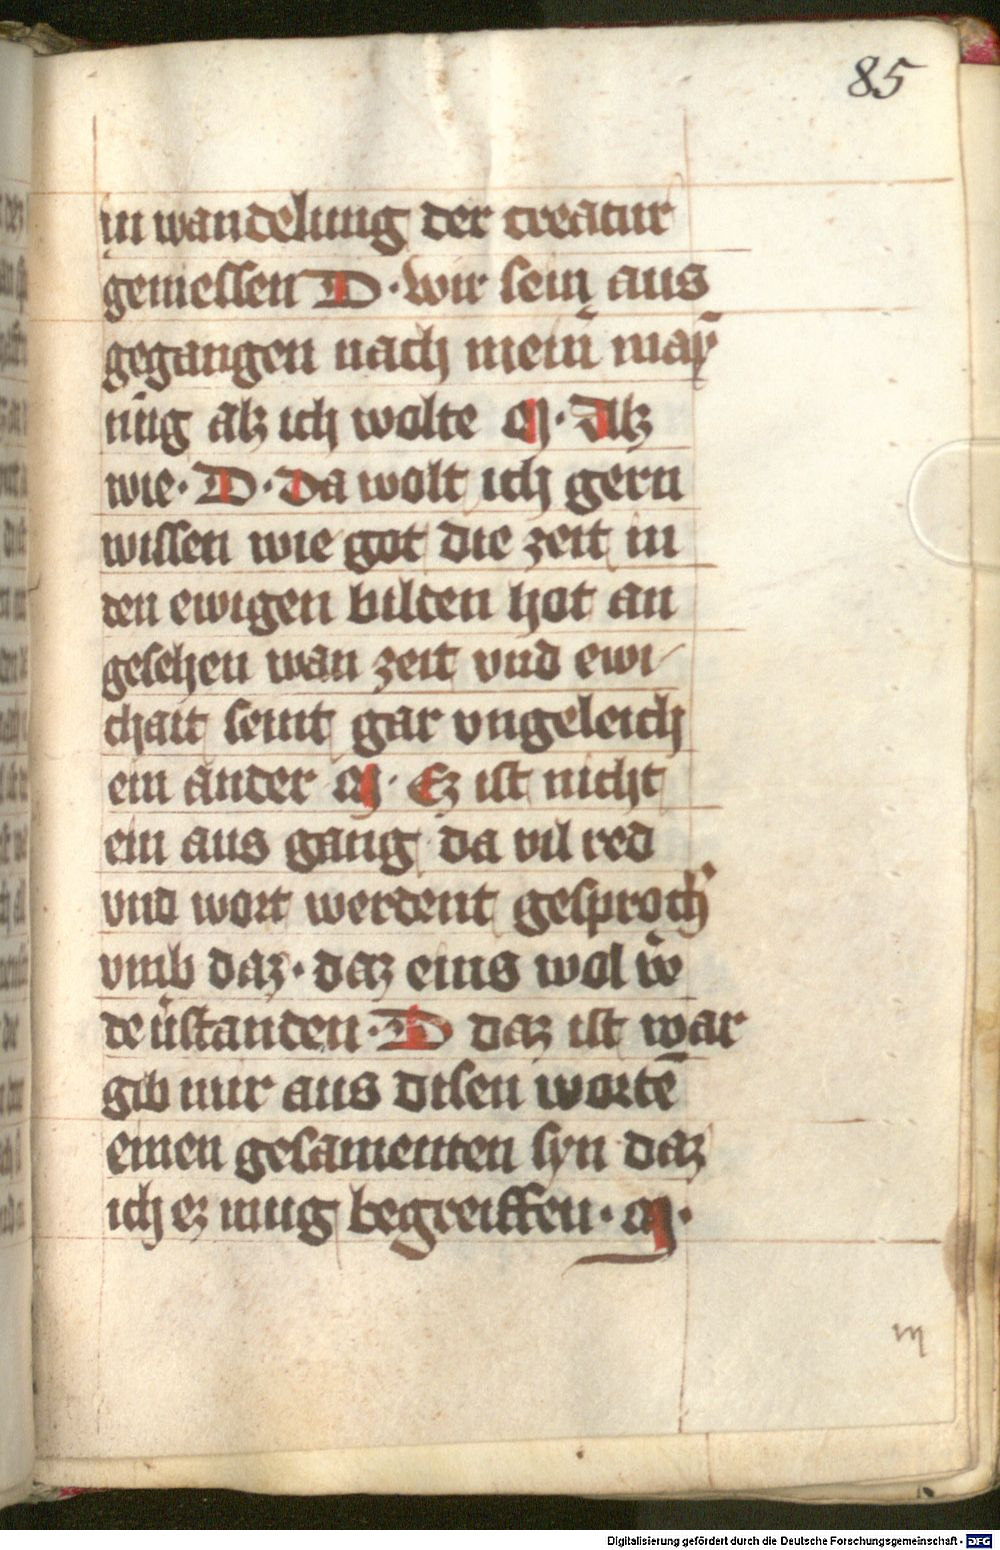 85
in wandelung der creatur
geniessen D · wir sein aus
gegangen nach meiñ may̅
nūg alz ich wolte M · Alz
wie · D · da wolt ich gern
wissen wie got die zeit in
den ewigen bilden hot an
gesehen wan zeit vnd ewi
chait seint gar vngeleich
ein ander M · Ez ist nicht
ein aus gang da vil red
vnd wort werdent gesproch̄
vmb daz · daz eins wol w̉e
de v̉standen · D daz ist war
gib mir aus disen wortē
einen gesamenten syn daz
ich ez mug begreiffen · M ·
Digitalisierung gefördert durch die Deutsche Forschungsgemeinschaft - DFG